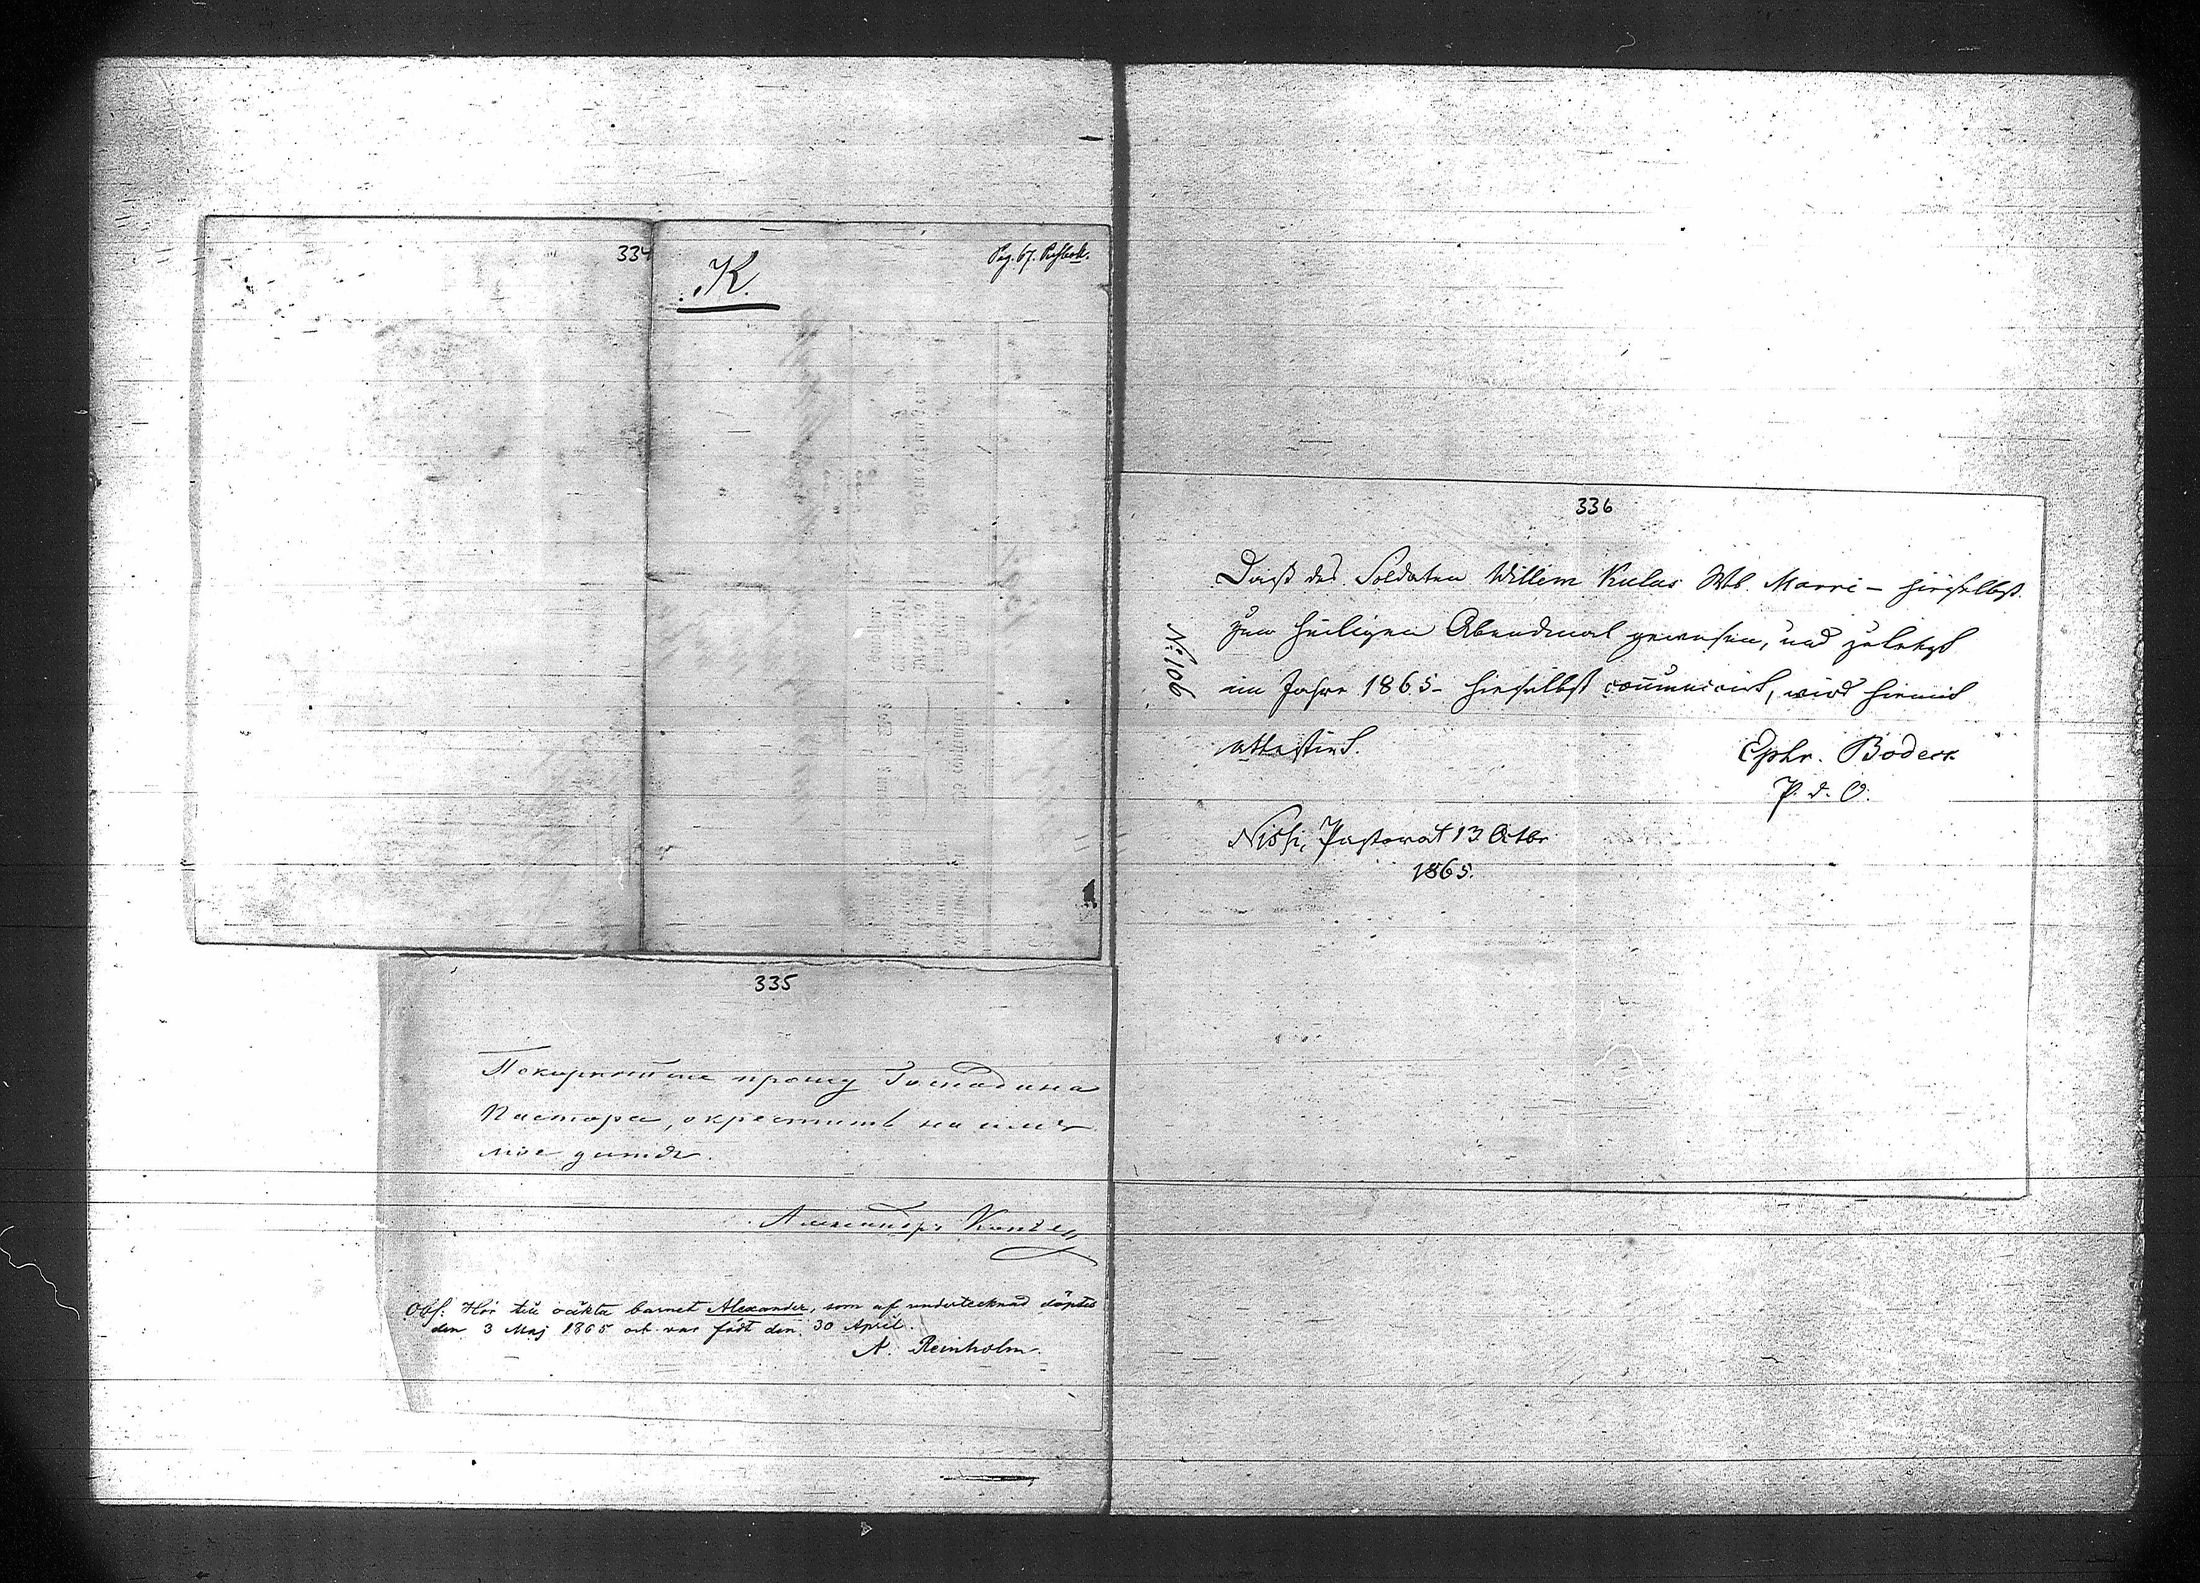 334
K.
Pag. 67.
335
Покорнейше прошу Господина
Пастора, окрестить на имя
мое дитя.
Александръ
Obs: Hör till oäkta barnet Alexander, som af undertecknad döptes
den 3 Maj 1865 och var född den 30 April.
A. Reinholm.
336
No 106
Daß des Soldaten Willem Kulas Wb. Marri – hieselbst
zum heiligen Abendmal gewesen, und zuletzt
im Jahre 1865 – hieselbst communicirt, wird hiemit
attestirt.
Ephr. Bodeck
P. d. O.
Nissi, Pastorat 13 Octbr
1865.